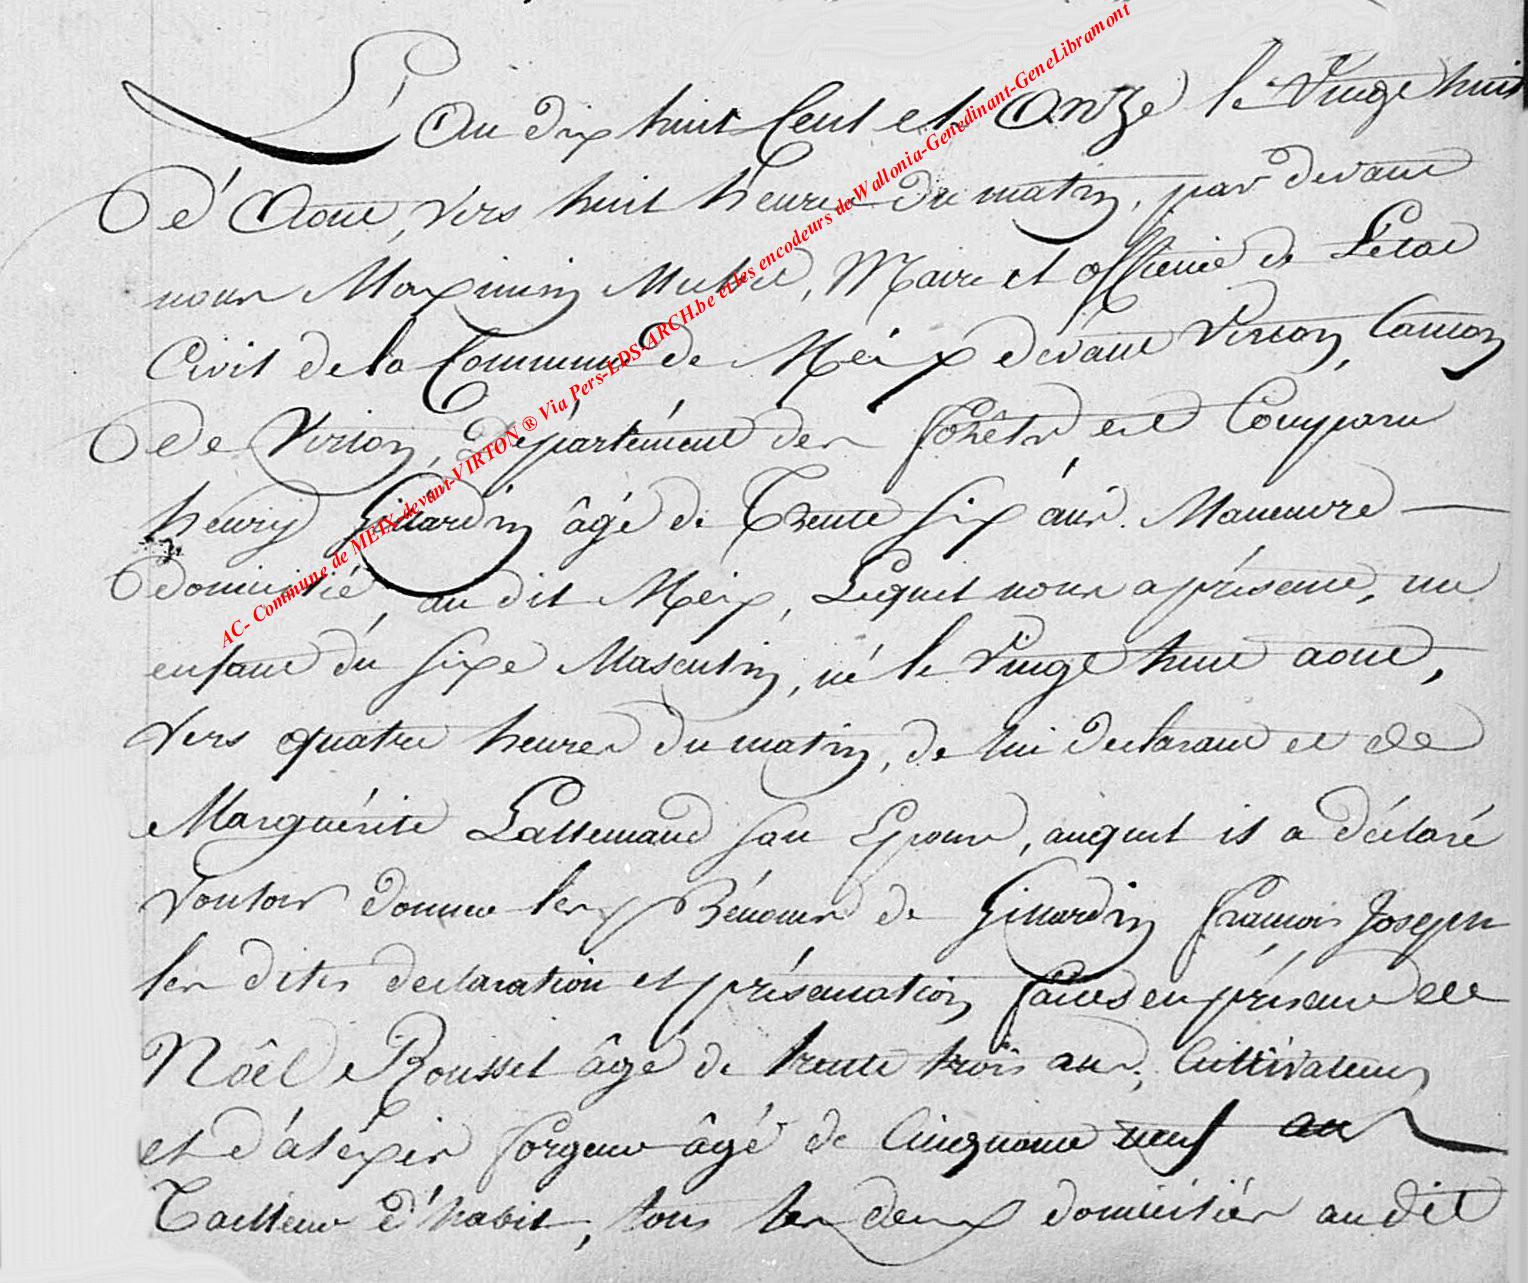 L'an dix huit Cent et Onze le Vingt huit
d'Aout, vers huit heures du matin, par devant
nous Maximin Michel, Maire et officiers de L'etat
Civil de la Commune de Méix devant Virton, Canton
de Virton, Département des forêts, est Comparu
henry Gillardin âgé de Trente six ans. Maneuvre —
domicilié, au dit Meix, Lequel nous a présenté, un
enfant du sixe Masculin, né le Vingt huit aout,
vers quatre heures du matin, de lui declarant et de
Marguérite Lallemand son Epouse, auquel il a déclaré
vouloir donner les Prénoms de Gillardin francois Joseph
les dites declaration et présentation faites en présence de
Noêl Rousset âgé de trente trois ans, Cultivateur
et d'aléxis forgeur âgé de Cinquante neuf ans
Tailleur d'habit, tous les deux domiciliés audit
AC- Commune de MEIX-devant-VIRTON ® Via Pers-EDS-ARCH.be et les encodeurs de Wallonia-Genedinant-GeneLibramont